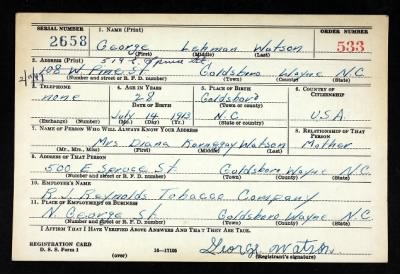 SERIAL NUMBER 1. NAME (Print) ORDER NUMBER
2658 George Lehman Watson 533
(First) (Middle) (Last)
519 E Spruce St
2. ADDRESS (Print)
108 W. Pine St. Goldsboro Wayne N.C.
(Number and street or R. F. D. number) (Town) (County) (State)
3. TELEPHONE 4. AGE IN YEARS 5. PLACE OF BIRTH 6. COUNTRY OF CITIZENSHIP
none 28 Goldsboro
DATE OF BIRTH (Town or county)
July 14 1913 N.C. U.S.A.
(Exchange) (Number) (Mo.) (Day) (Yr.) (State or country)
7. NAME OF PERSON WHO WILL ALWAYS KNOW YOUR ADDRESS 8. RELATIONSHIP OF THAT PERSON
Mrs Diana Kornegay Watson Mother
(Mr., Mrs., Miss) (First) (Middle) (Last)
9. ADDRESS OF THAT PERSON
500 E Spruce St. Goldsboro Wayne N.C.
(Number and street or R. F. D. number) (Town) (County) (State)
10. EMPLOYER'S NAME
R. J. Reynolds Tobacco Company
11. PLACE OF EMPLOYMENT OR BUSINESS
N. George St. Goldsboro Wayne N.C.
(Number and street or R. F. D. number) (Town) (County) (State)
I AFFIRM THAT I HAVE VERIFIED ABOVE ANSWERS AND THAT THEY ARE TRUE.
REGISTRATION CARD
D. S. S. Form 1 16—17105 George Watson
(over) (Registrant's signature)